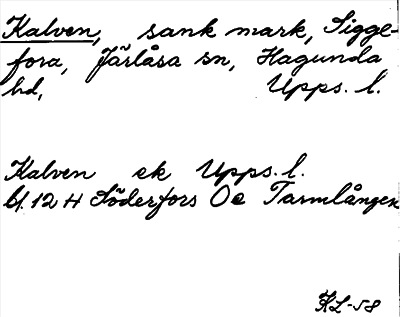 Kalven, sank mark, Sigge-
fora, Järlåsa sn, Hagunda
hd, Upps. l.
Kalven ek Upps. l.
bl. 12 H Söderfors Oe Tarmlången
KL-58